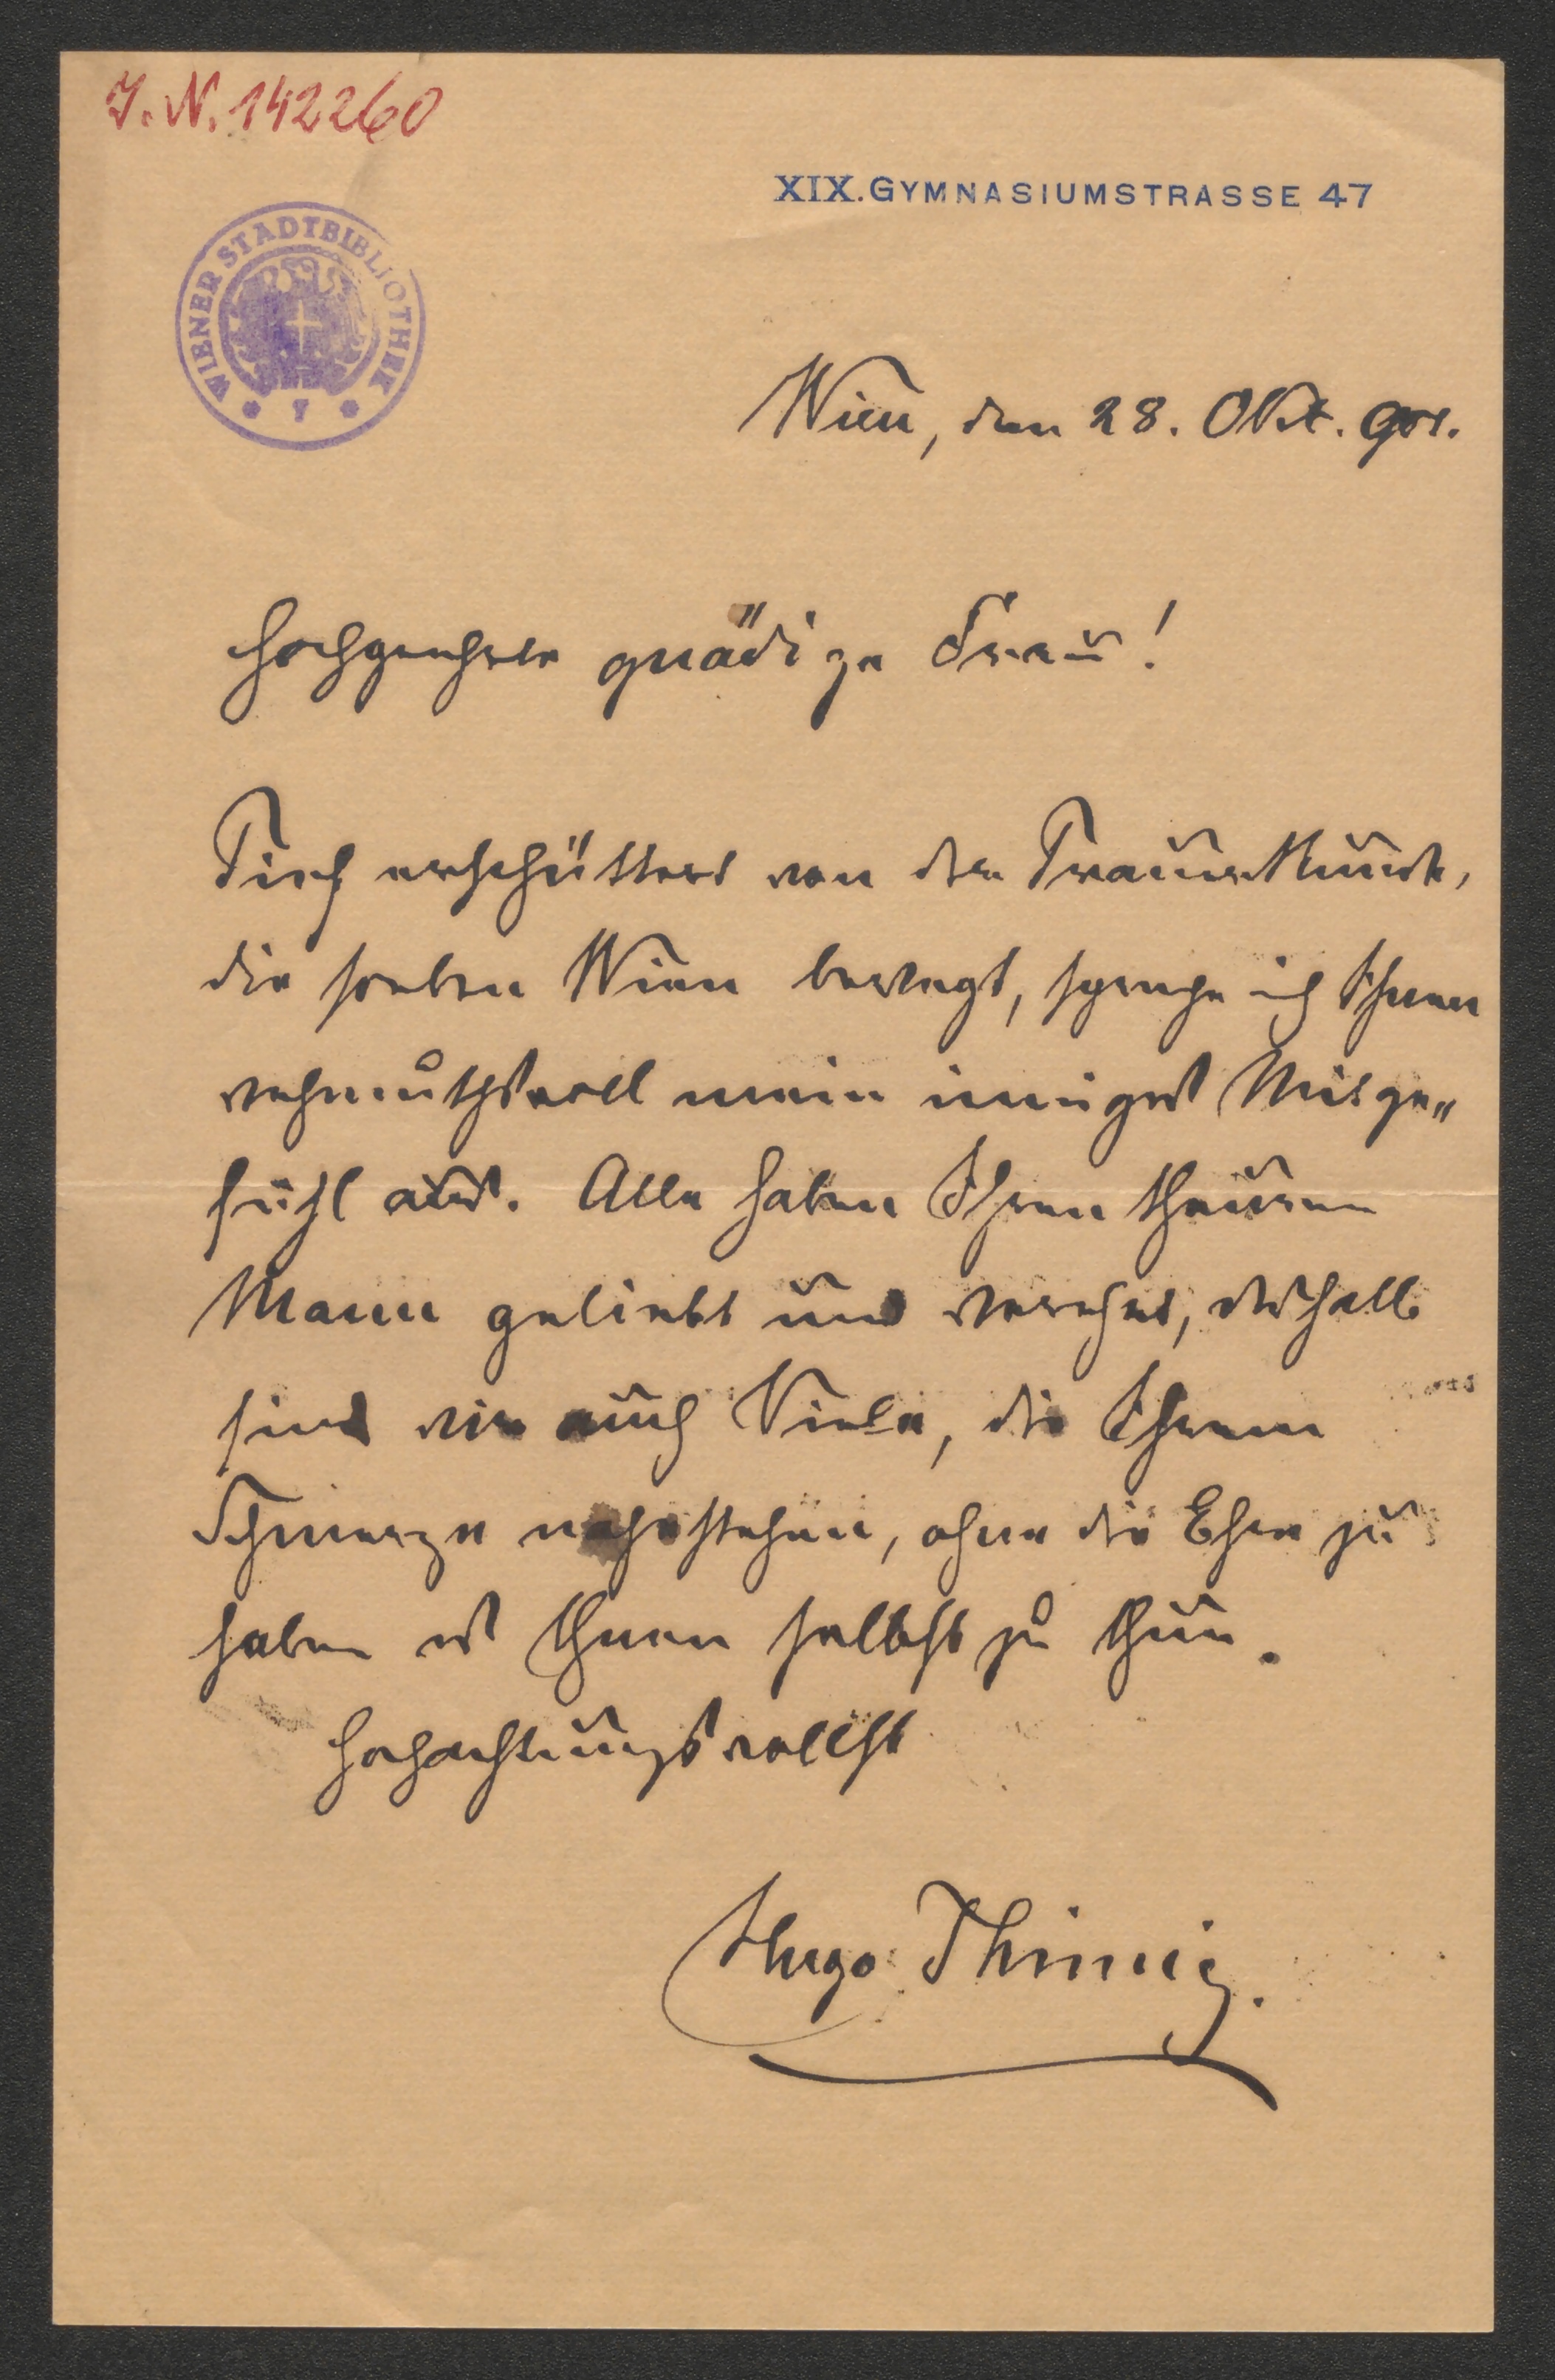 J. N. 142260
XIX. GYMNASIUMSTRASSE 47
WIENER STADTBIBLIOTHEK
Wien, den 28. Okt. 901.
Hochgeehrte gnädige Frau!
Tief erschüttert von der Trauerkunde,
die soeben Wien bewegt, spreche ich Ihnen
wehmuthsvoll mein inniges Mitge„
fühl aus. Alle haben Ihren theuren
Mann geliebt und verehrt, deshalb
sind wir auch Viele, die Ihrem
Schmerze nahestehen, ohne die Ehre zu
haben es Ihnen selbst zu thun.
Hochachtungsvollst
Hugo Thimig.